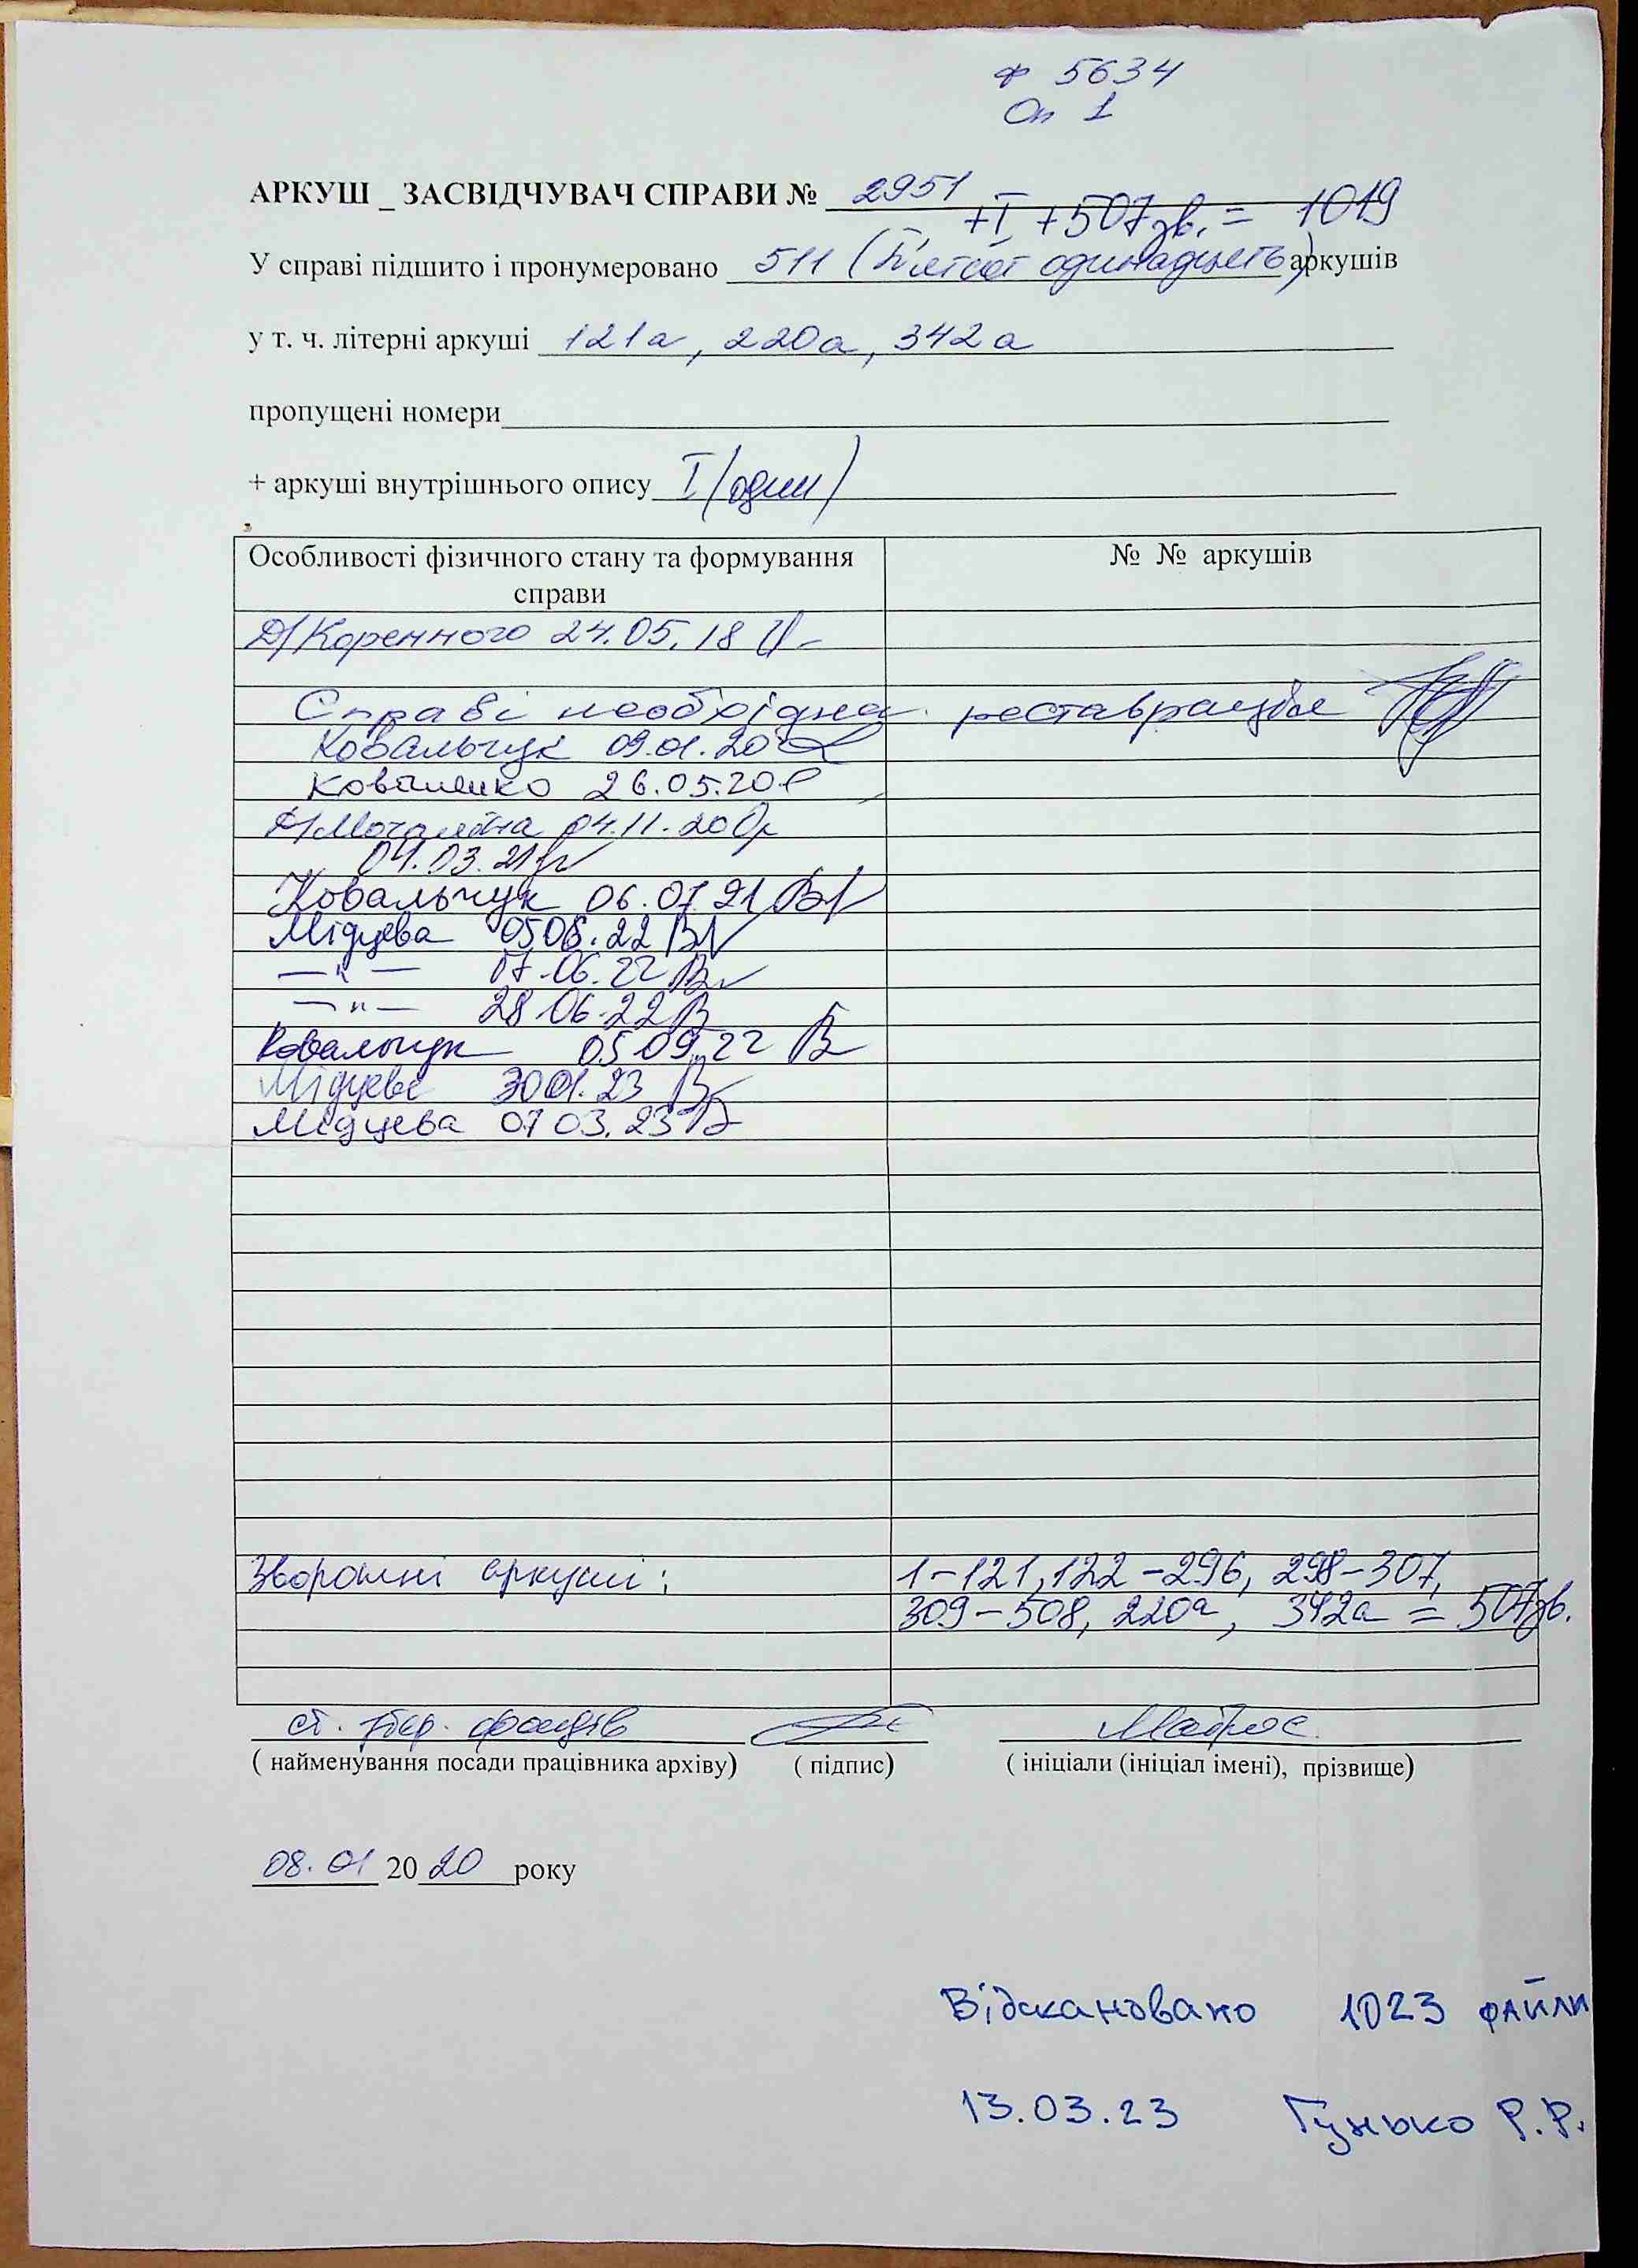 ф 5634
Оп 1
АРКУШ _ ЗАСВІДЧУВАЧ СПРАВИ № 2951
+I +507зв. = 1019
У справі підшито і пронумеровано 511 (П'ятсот одинадцять) аркушів
у т. ч. літерні аркуші 121а, 220а, 342а
пропущені номери
+ аркуші внутрішнього опису I /один/
Особливості фізичного стану та формування справи
№ № аркушів
Д/Коренного 24.05.18
Справі необхідна реставрація
Ковальчук 09.01.20
26.05.20
04.11.20
04.03.21
Ковальчук 06.07.21
Мідцева 05.08.22
—"— 07.06.22
—"— 28.06.22
Ковальчук 05.09.22
Мідцева 30.01.23
Мідцева 07.03.23
Зворотні аркуші: 1-121, 122-296, 298-307,
309-508, 220а, 342а = 507зв.
ст. фондів
( найменування посади працівника архіву) ( підпис) ( ініціали (ініціал імені), прізвище)
08.01 2020 року
Відскановано 1023 файли
13.03.23 Гунько Р.Р.